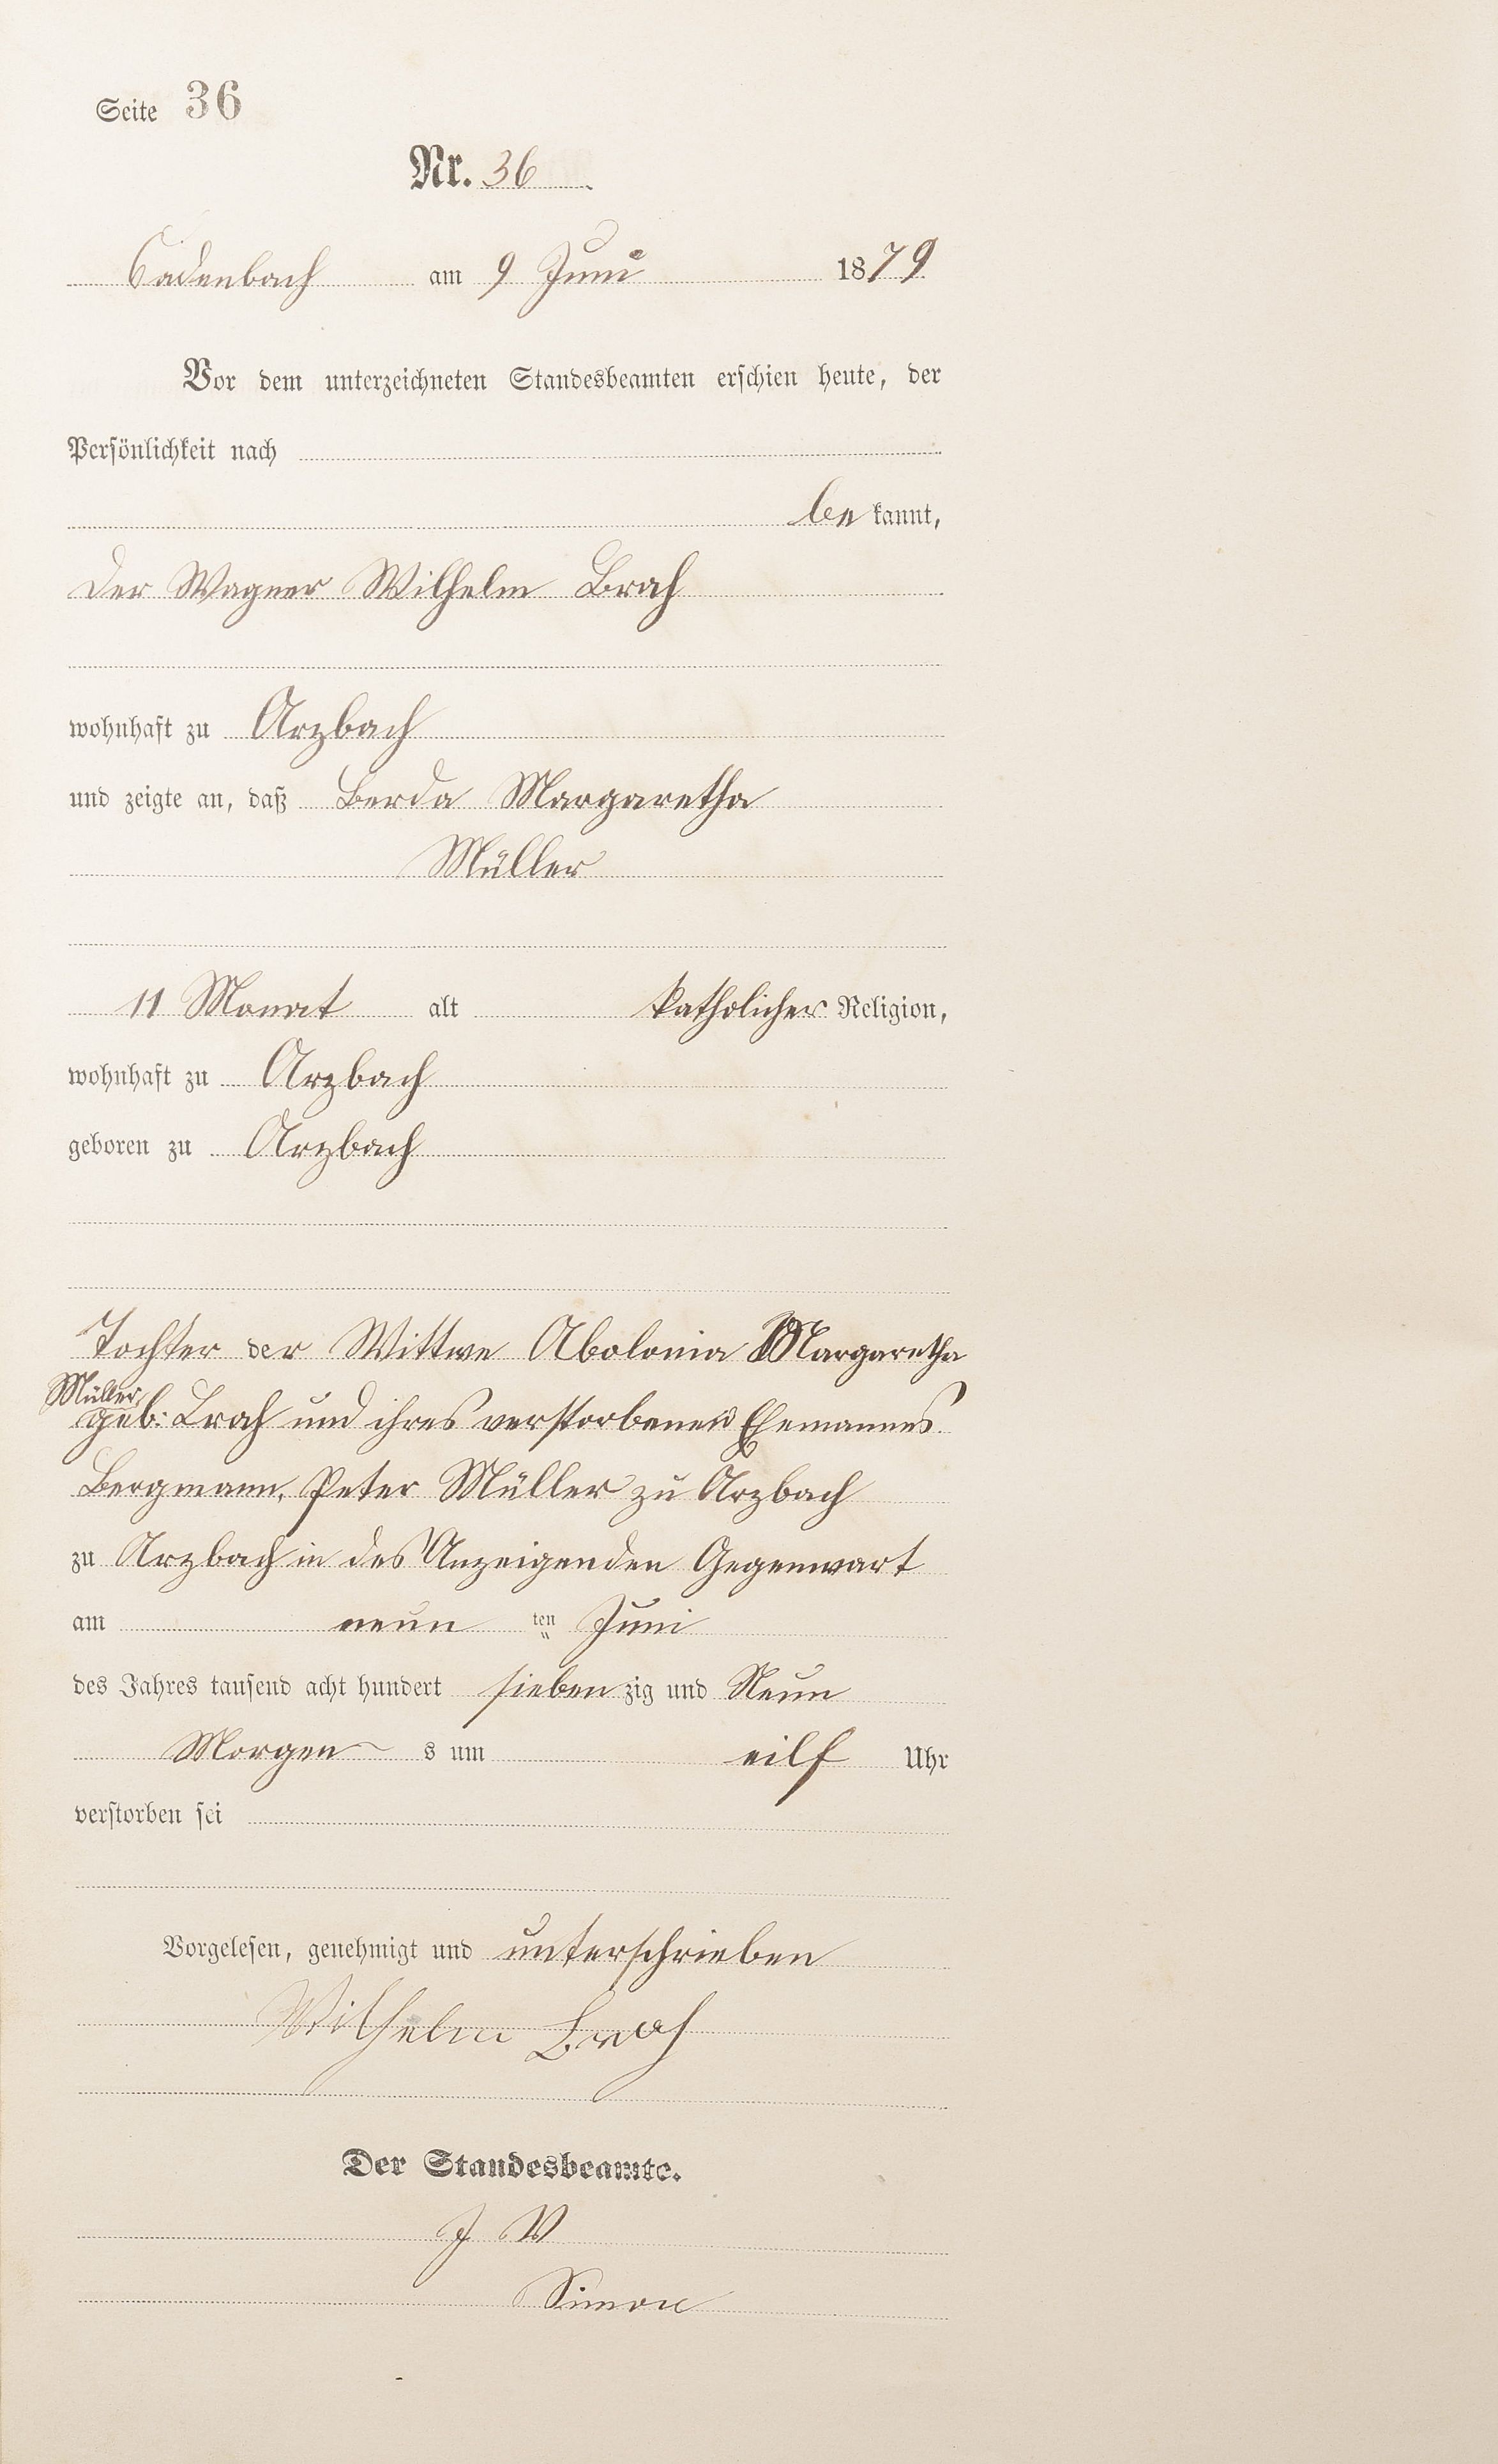 Seite 36
Nr. 36
Cadenbach am 9 Juni 1879
Vor dem unterzeichneten Standesbeamten erschien heute, der
Persönlichkeit nach
be kannt,
der Wagner Wilhelm Brah
wohnhaft zu Arzbach
und zeigte an, daß Berda Margaretha
Müller
11 Monat alt katholicher Religion,
wohnhaft zu Arzbach
geboren zu Arzbach
Tochter der Wittwe Abolonia Margaretha
Müller
geb: Brah und ihres verstorbenen Ehemannes
Bergmann, Peter Müller zu Arzbach
zu Arzbach in des Anzeigenden Gegenwart
am neun ten Juni
des Jahres tausend acht hundert sieben zig und Neun
Morgen s um eilf Uhr
verstorben sei
Vorgelesen, genehmigt und unterschrieben
Wilhelm Brah
Der Standesbeamte.
J V
Simon